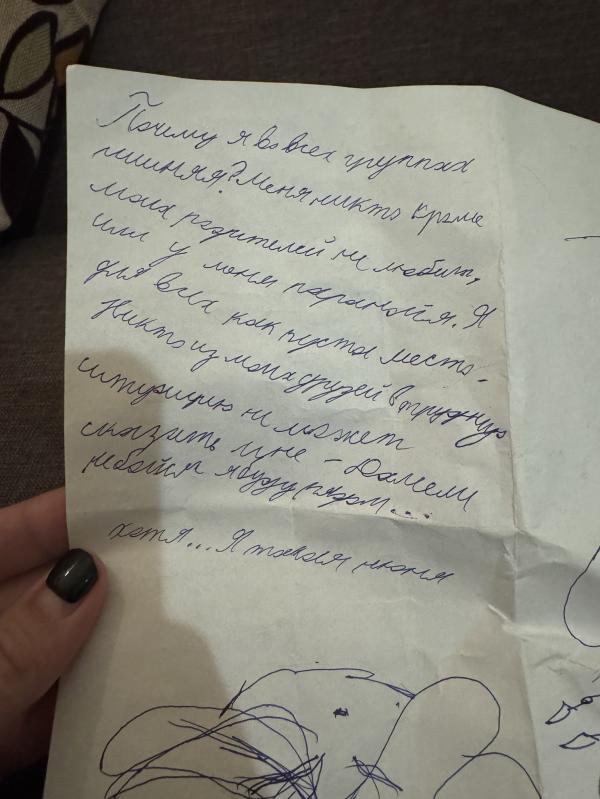 Почему я во всех группах
лишняя? Меня никто кроме
моих родителей не любит,
или у меня паранойя. Я
для всех как пустое место.
Никто из моих друзей в трудную
ситуацию не может
сказать мне - Дамели
не бойся я буду рядом...
хотя... Я такая нюня